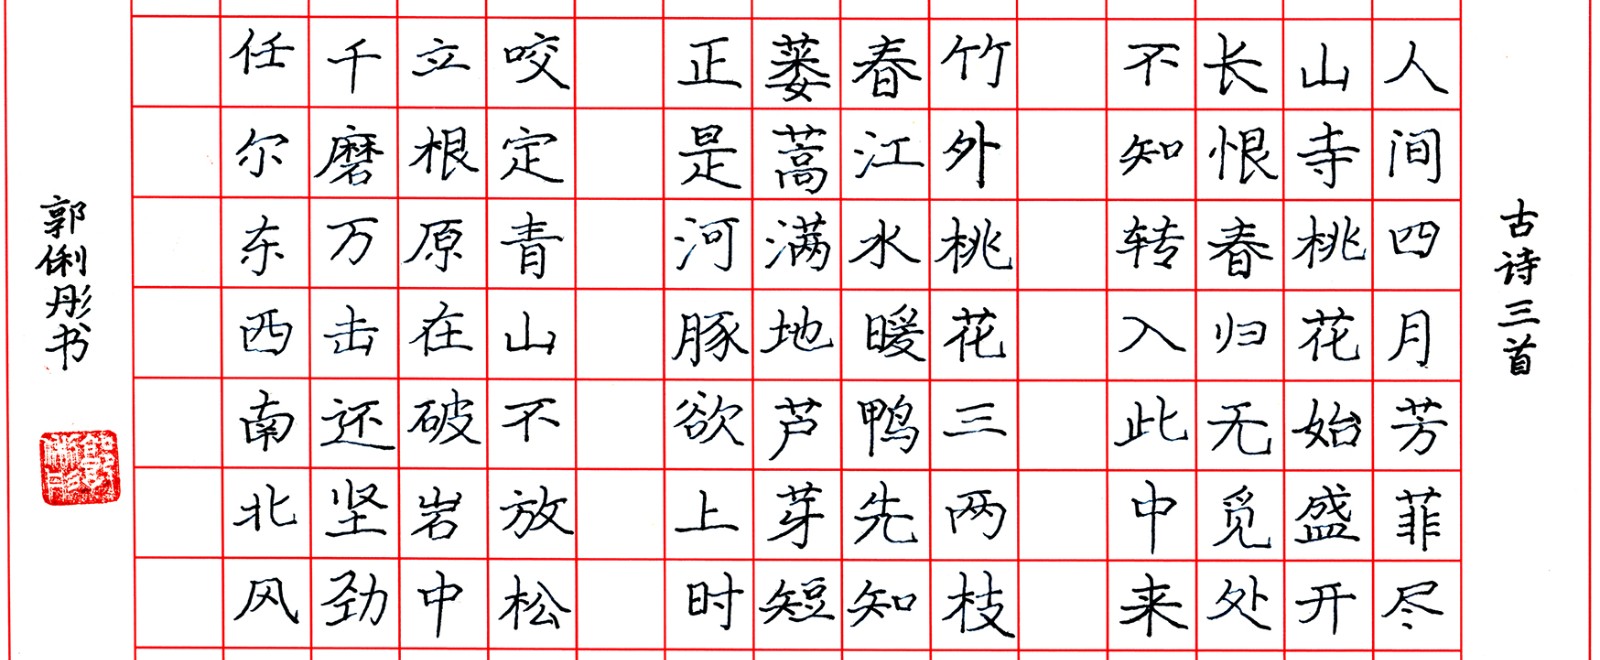 古诗三首
人间四月芳菲尽
山寺桃花始盛开
长恨春归无觅处
不知转入此中来
竹外桃花三两枝
春江水暖鸭先知
蒌蒿满地芦芽短
正是河豚欲上时
咬定青山不放松
立根原在破岩中
千磨万击还坚劲
任尔东西南北风
郭俐彤书